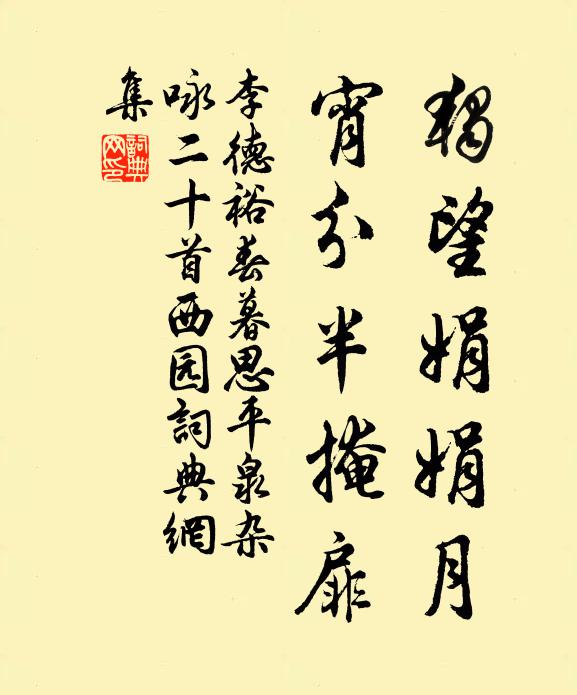 独望娟娟月
宵分半掩扉
李德裕春暮思平泉杂
咏二十首西园詞典網
集
詞典
网印